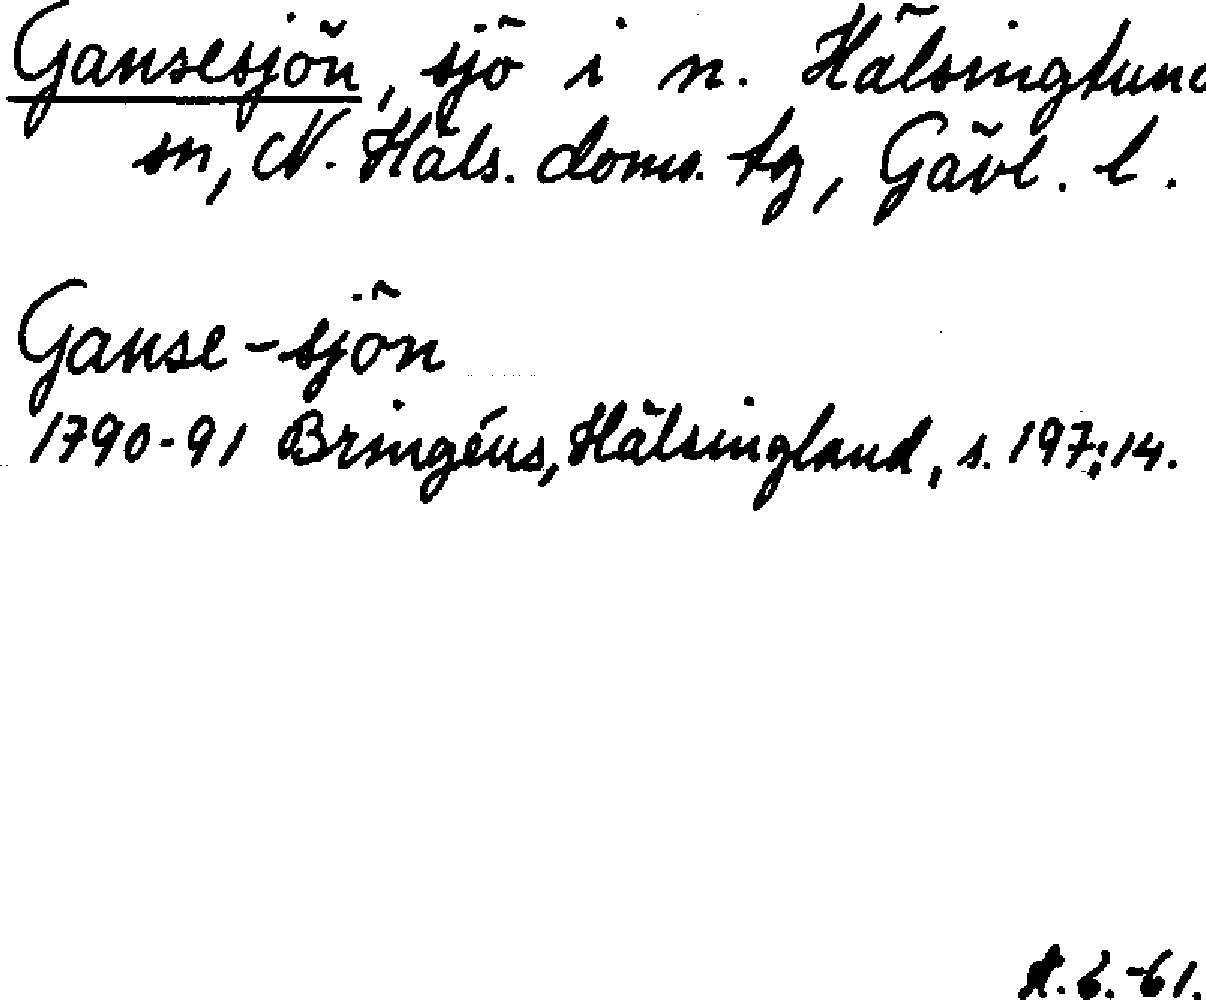 Gansesjön, sjö i n. Hälsingtuna
sn, N. Häls. doms. tg, Gävl. l.
Ganse-sjön
1790-91 Bringéus, Hälsingland, s. 197:14.